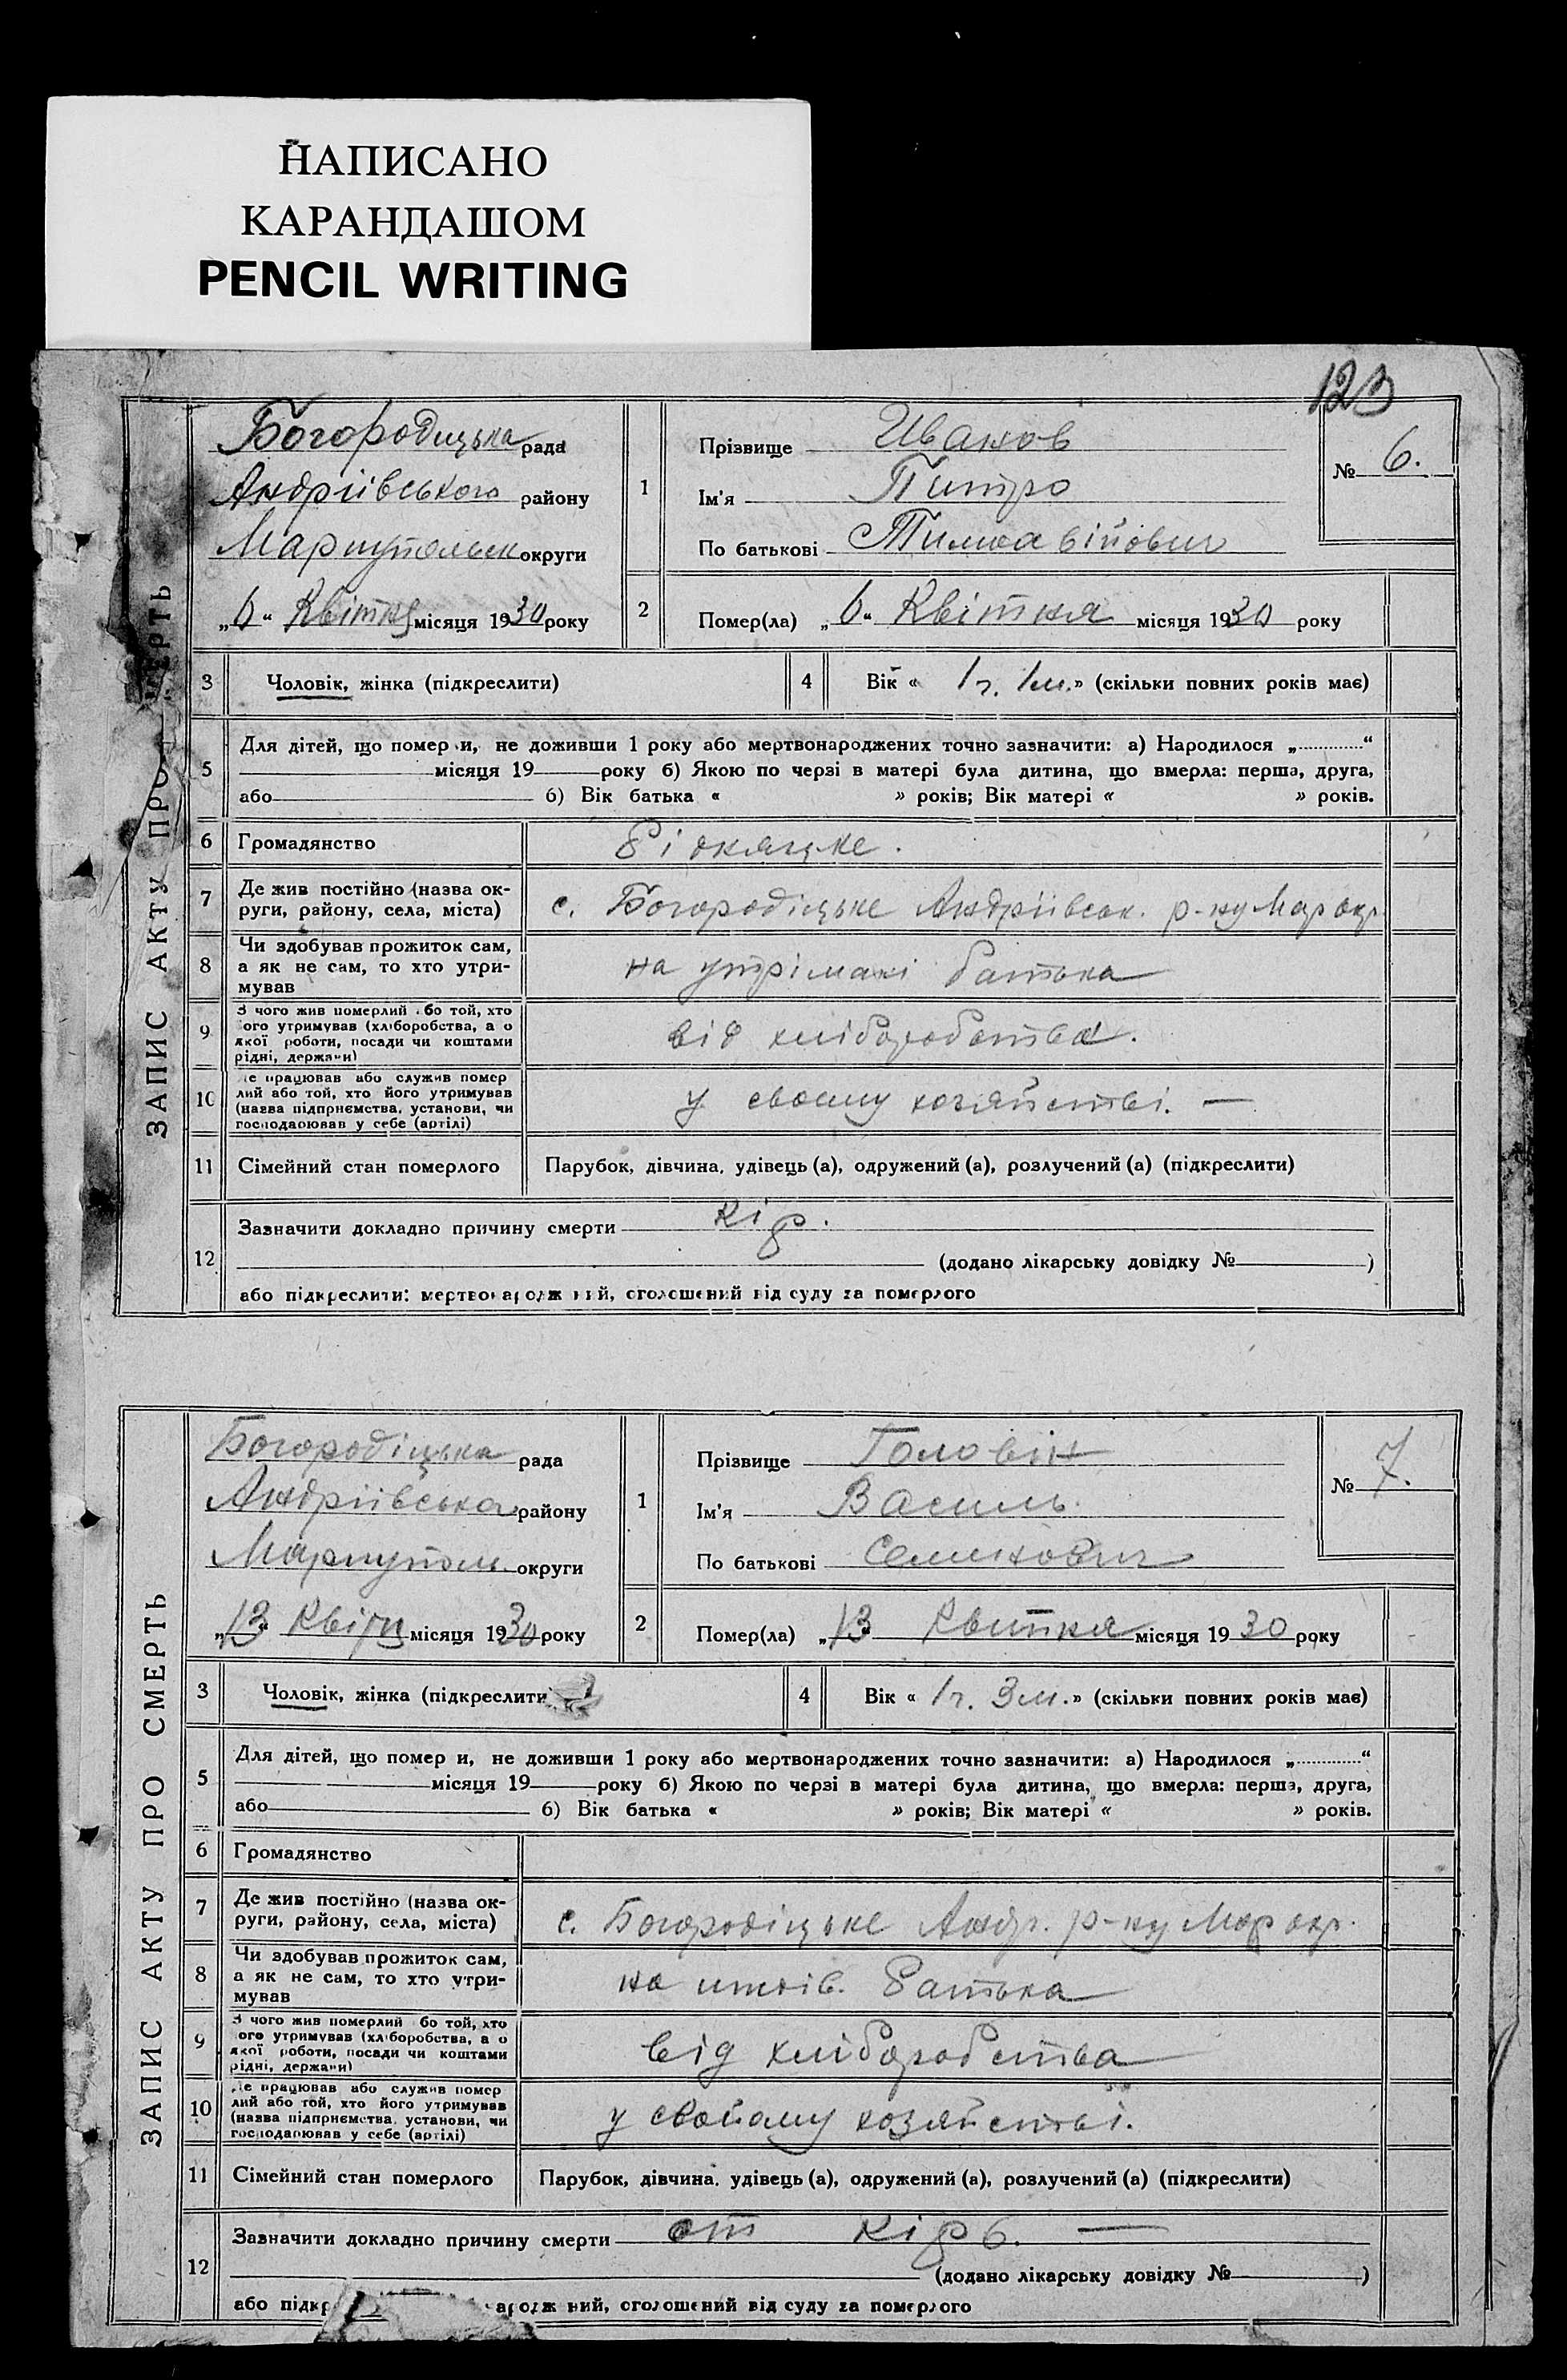 НАПИСАНО
КАРАНДАШОМ
PENCIL WRITING
123
ЗАПИС АКТУ ПРО СМЕРТЬ
Богородицька рада
Андріівського району
Мариупольск округи
„6“ Квітня місяця 1930 року
1
Прізвище Иванов
Ім'я Питро
По батькові Тимофійович
№ 6.
2 Помер(ла) „6“ Квітня місяця 1930 року
3 Чоловік, жінка (підкреслити)
4 Вік « 1 г. 1 м.» (скільки повних років має)
5
Для дітей, що помер и, не доживши 1 року або мертвонароджених точно зазначити: а) Народилося „............“
місяця 19 року б) Якою по черзі в матері була дитина, що вмерла: перша, друга,
або б) Вік батька « » років; Вік матері « » років.
6 Громадянство
7 Де жив постійно (назва ок-
руги, району, села, міста)
с. Богородіцьке Андріівськ. р-ну Мар окр.
8 Чи здобував прожиток сам,
а як не сам, то хто утри-
мував
на утрімані батька
9 З чого жив померлий або той, хто
ого утримував (хліборобства, а о
якої роботи, посади чи коштами
рідні, держави)
від хліборобства.
10 Де працював або служив помер
лий або той, хто його утримував
(назва підприємства, установи, чи
господарював у себе (артілі)
у своему хозяйстві. —
11 Сімейний стан померлого
Парубок, дівчина, удівець (а), одружений (а), розлучений (а) (підкреслити)
12
Зазначити докладно причину смерти кір.
(додано лікарську довідку № )
або підкреслити: мертвонароджений, оголошений від суду за померлого
ЗАПИС АКТУ ПРО СМЕРТЬ
Богородіцька рада
Андріівська району
Мариуполь. округи
„13“ Квітн місяця 1930 року
1
Прізвище Головін
Ім'я Василь
По батькові Семинович
№ 7.
2 Помер(ла) „13 Квитня місяця 1930 року
3 Чоловік, жінка (підкреслити
4 Вік « 1 г. 3 м.» (скільки повних років має)
5
Для дітей, що помер и, не доживши 1 року або мертвонароджених точно зазначити: а) Народилося „............“
місяця 19 року б) Якою по черзі в матері була дитина, що вмерла: перша, друга,
або б) Вік батька « » років; Вік матері « » років.
6 Громадянство
7 Де жив постійно (назва ок-
руги, району, села, міста)
с. Богородіцьке Андр. р-ну Мар окр.
8 Чи здобував прожиток сам,
а як не сам, то хто утри-
мував
на батька
9 З чого жив померлий або той, хто
ого утримував (хліборобства, а о
якої роботи, посади чи коштами
рідні, держави)
від хліборобства
10 Де працював або служив помер
лий або той, хто його утримував
(назва підприємства, установи, чи
господарював у себе (артілі)
у свойому хозяйстві.
11 Сімейний стан померлого
Парубок, дівчина, удівець (а), одружений (а), розлучений (а) (підкреслити)
12
Зазначити докладно причину смерти от кірь. —
(додано лікарську довідку № )
або підкр ародж ний, оголошений від суду за померлого